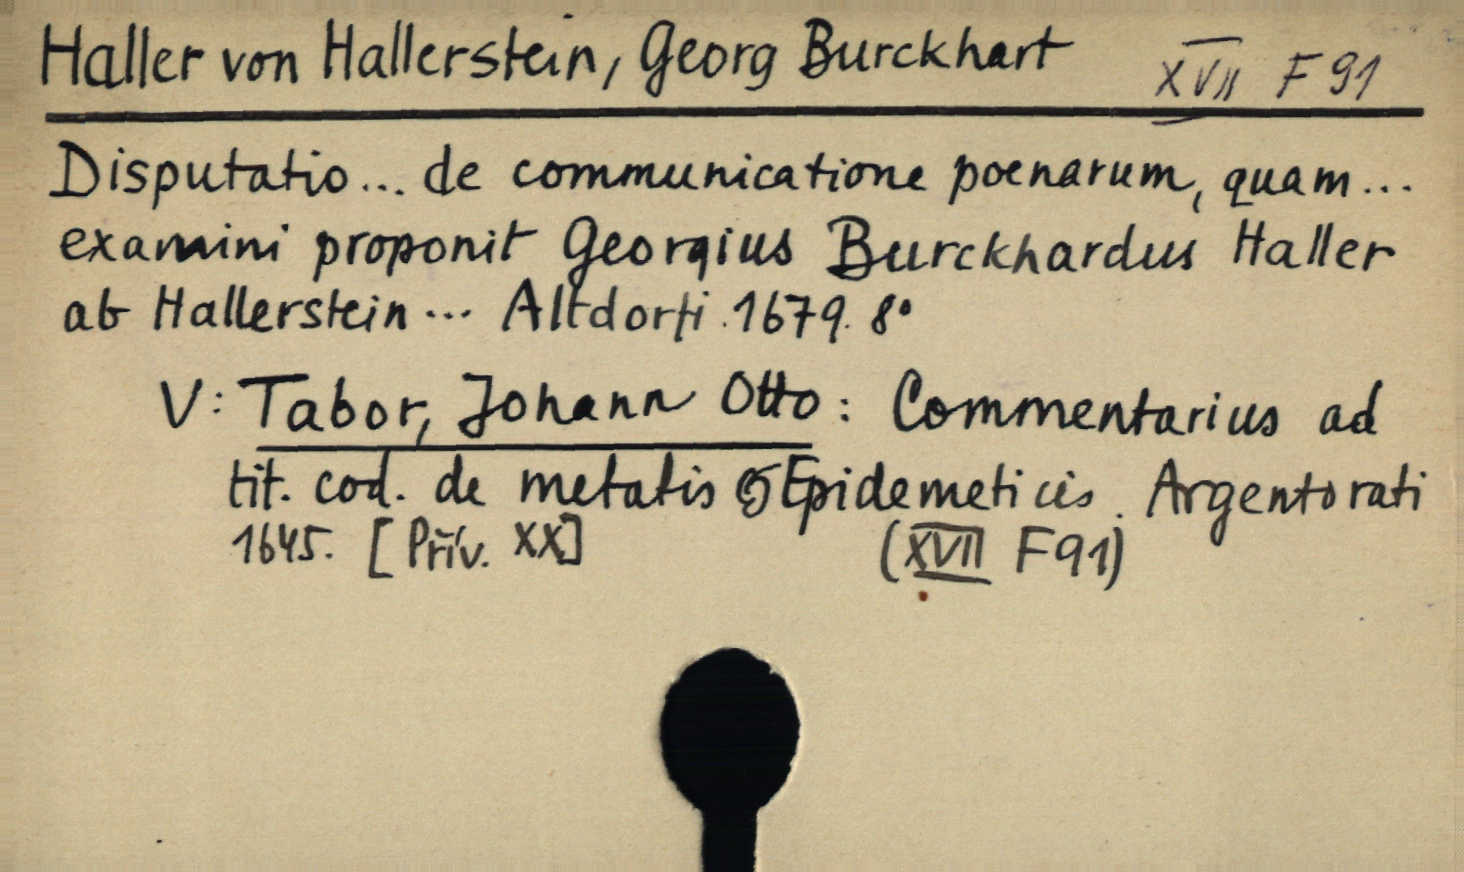 Haller von Hallerstein, Georg Burckhart XVII F 91
Disputatio... de communicatione poenarum, quam...
examini proponit Georgius Burckhardus Haller
ab Hallerstein... Altdorfi. 1679. 8°
V: Tabor, Johann Otto: Commentarius ad
tit. cod. de metatis & Epidemeticis. Argentorati
1645. [Přív. XX] (XVII F91)